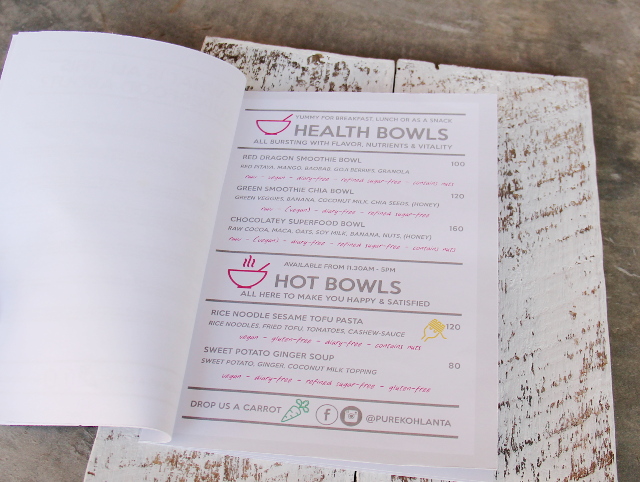 YUMMY FOR BREAKFAST, LUNCH OR AS A SNACK
HEALTH BOWLS
ALL BURSTING WITH FLAVOR, NUTRIENTS & VITALITY
RED DRAGON SMOOTHIE BOWL 100
RED PITAYA, MANGO, BAOBAB, GOJI BERRIES, GRANOLA
raw - vegan - diary-free - refined sugar-free - contains nuts
GREEN SMOOTHIE CHIA BOWL 120
GREEN VEGGIES, BANANA, COCONUT MILK, CHIA SEEDS, (HONEY)
raw - (vegan) - diary-free - refined sugar-free
CHOCOLATEY SUPERFOOD BOWL 160
RAW COCOA, MACA, OATS, SOY MILK, BANANA, NUTS, (HONEY)
raw - (vegan) - diary-free - refined sugar-free - contains nuts
AVAILABLE FROM 11.30AM - 5PM
HOT BOWLS
ALL HERE TO MAKE YOU HAPPY & SATISFIED
RICE NOODLE SESAME TOFU PASTA 120
RICE NOODLES, FRIED TOFU, TOMATOES, CASHEW-SAUCE
vegan - gluten-free - diary-free - contains nuts
SWEET POTATO GINGER SOUP 80
SWEET POTATO, GINGER, COCONUT MILK TOPPING
vegan - diary-free - refined sugar-free - gluten-free
DROP US A CARROT f @PUREKOHLANTA